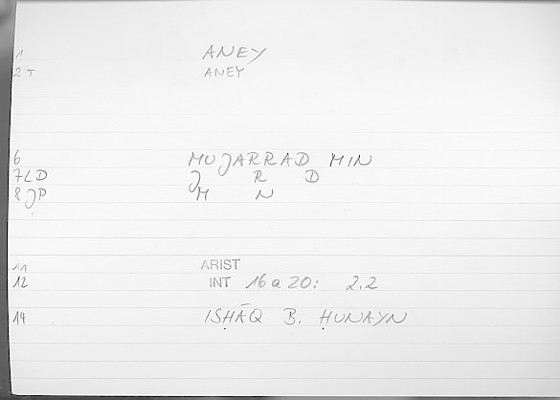 1 ANEY
2 T ANEY
6 MUJARRAD MIN
7LD J R D
8 JP M N
11 ARIST
12 INT 16a20: 2.2
14 ISḤĀQ B. ḤUNAYN